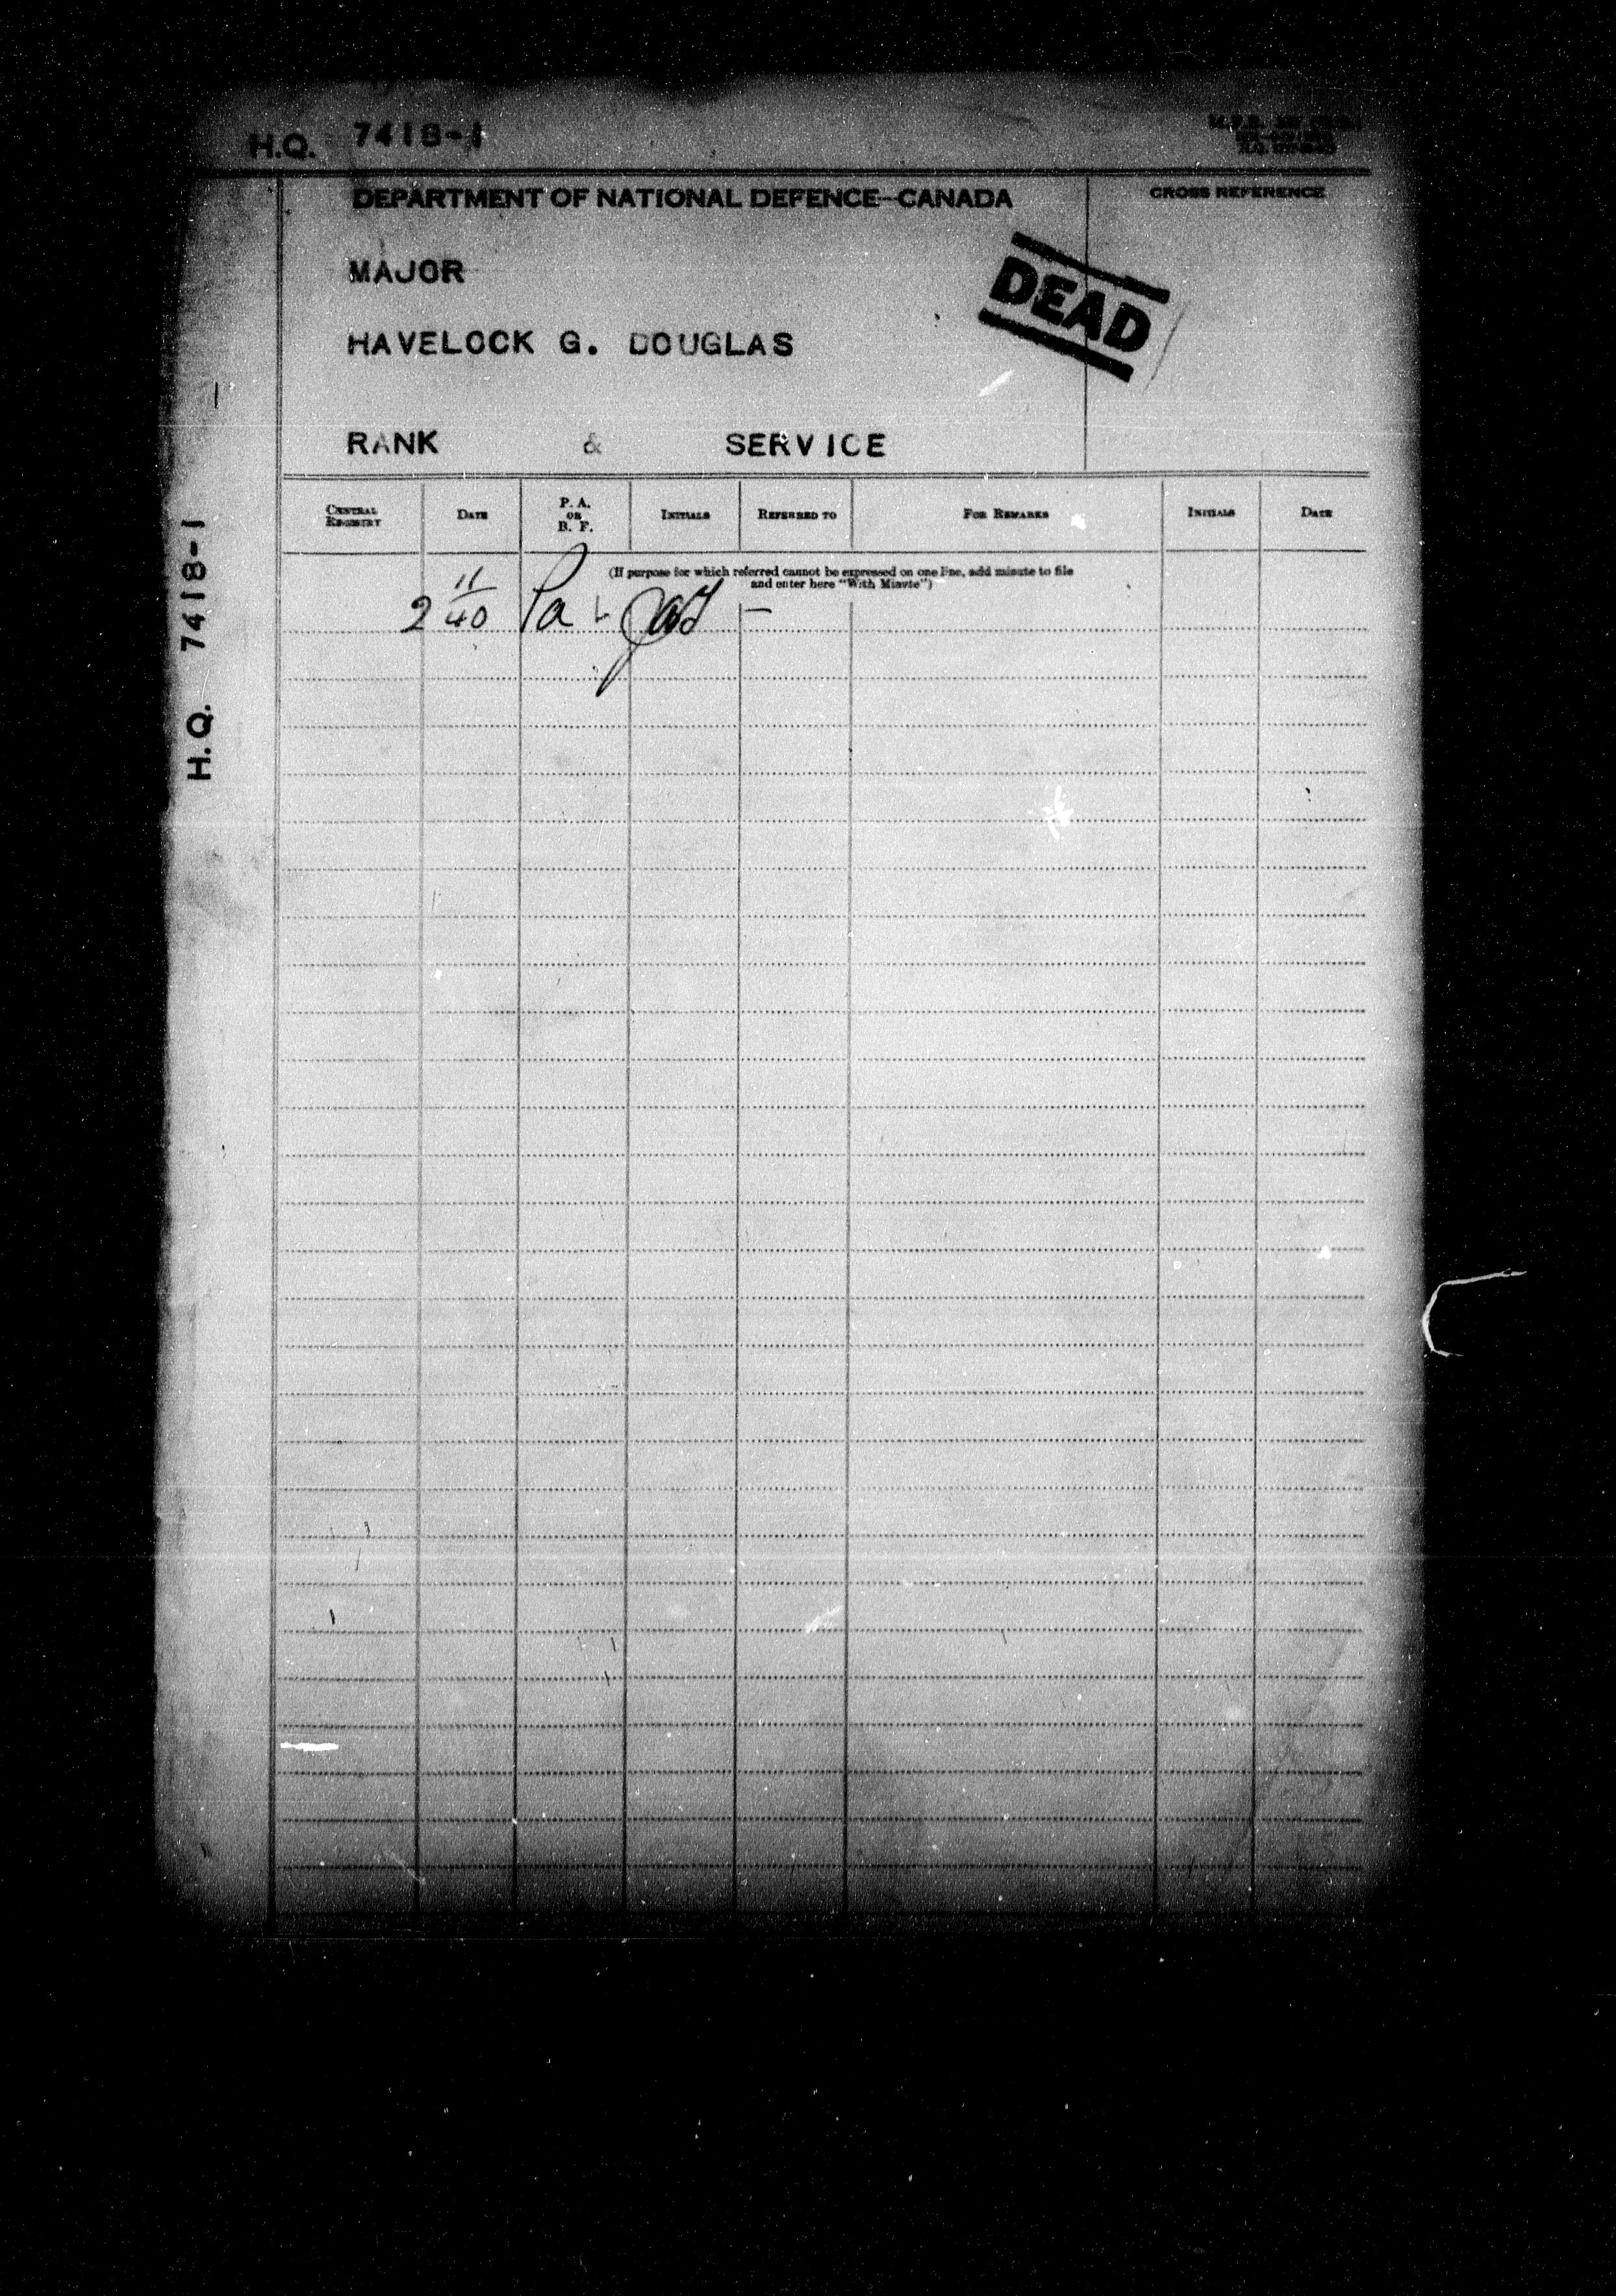 H.Q. 7418-1
DEPARTMENT OF NATIONAL DEFENCE—CANADA
CROSS REFERENCE
MAJOR
DEAD
HAVELOCK G. DOUGLAS
RANK & SERVICE
H.Q. 7418-1
CENTRAL REGISTRY DATE P. A. OR B. F. INITIALS REFERRED TO FOR REMARKS INITIALS DATE
(If purpose for which referred cannot be expressed on one line, add minute to file
and enter here "With Minute")
2 11/40 Pa